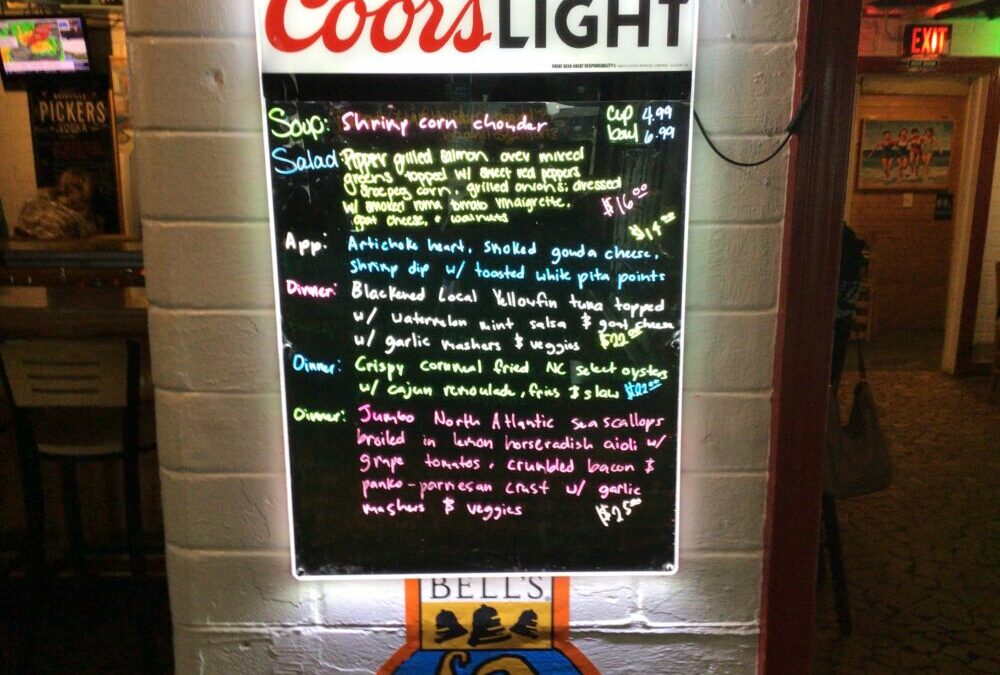 Coors LIGHT
GREAT BEER GREAT RESPONSIBILITY
PICKERS
VODKA
EXIT
Soup: Shrimp corn chowder cup 4.99
bowl 6.99
Salad: Pepper grilled salmon over mixed
greens topped w/ sweet red peppers
shoepeg corn, grilled onions; dressed
w/ smoked roma tomato vinaigrette, $16.00
goat cheese, & walnuts
$14.00
App: Artichoke heart, smoked gouda cheese,
shrimp dip w/ toasted white pita points
Dinner: Blackened Local Yellowfin tuna topped
w/ watermelon mint salsa & goat cheese
w/ garlic mashers & veggies $22.00
Dinner: Crispy cornmeal fried NC select oysters
w/ cajun remoulade, fries & slaw $22.00
Dinner: Jumbo North Atlantic sea scallops
broiled in lemon horseradish aioli w/
grape tomatos, crumbled bacon &
panko-parmesan crust w/ garlic
mashers & veggies $25.00
BELL'S